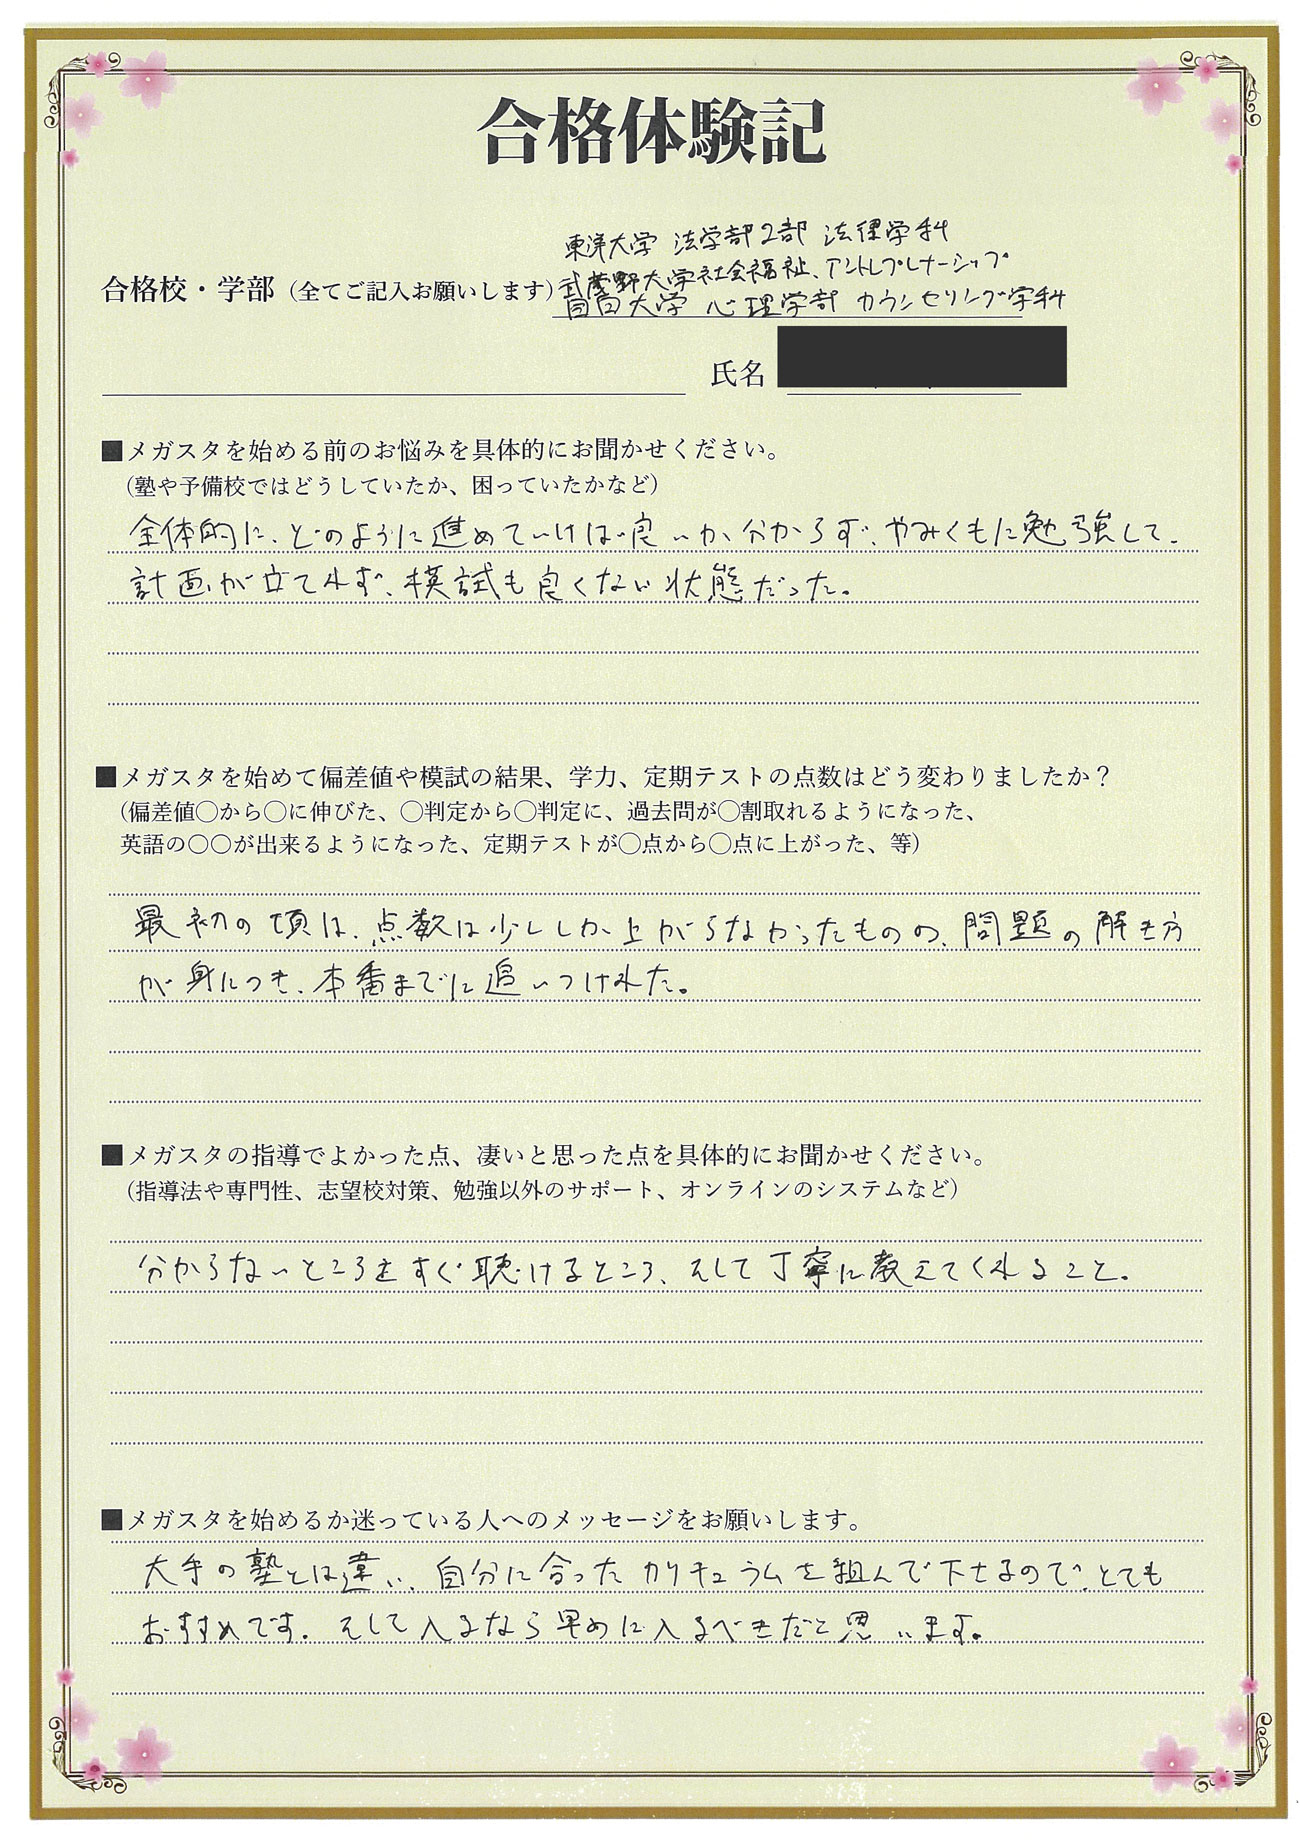 合格体験記
東洋大学 法学部2部 法律学科
武蔵野大学社会福祉、アントレプレナーシップ
合格校・学部(全てご記入お願いします)目白大学 心理学部 カウンセリング学科
氏名
■メガスタを始める前のお悩みを具体的にお聞かせください。
(塾や予備校ではどうしていたか、困っていたかなど)
全体的に、どのように進めていけば良いか、分からず、やみくもに勉強して、
計画が立てれず、模試も良くない状態だった。
■メガスタを始めて偏差値や模試の結果、学力、定期テストの点数はどう変わりましたか?
(偏差値〇から〇に伸びた、〇判定から〇判定に、過去問が〇割取れるようになった、
英語の〇〇が出来るようになった、定期テストが〇点から〇点に上がった、等)
最初の頃は、点数は少ししか上がらなかったものの、問題の解き方
が身につき、本番までに追いつけれた。
■メガスタの指導でよかった点、凄いと思った点を具体的にお聞かせください。
(指導法や専門性、志望校対策、勉強以外のサポート、オンラインのシステムなど)
分からないところをすぐ聴けるところ、そして丁寧に教えてくれること。
■メガスタを始めるか迷っている人へのメッセージをお願いします。
大手の塾とは違い、自分に合ったカリキュラムを組んで下せるので、とても
おすすめです。そして入るなら早めに入るべきだと思います。